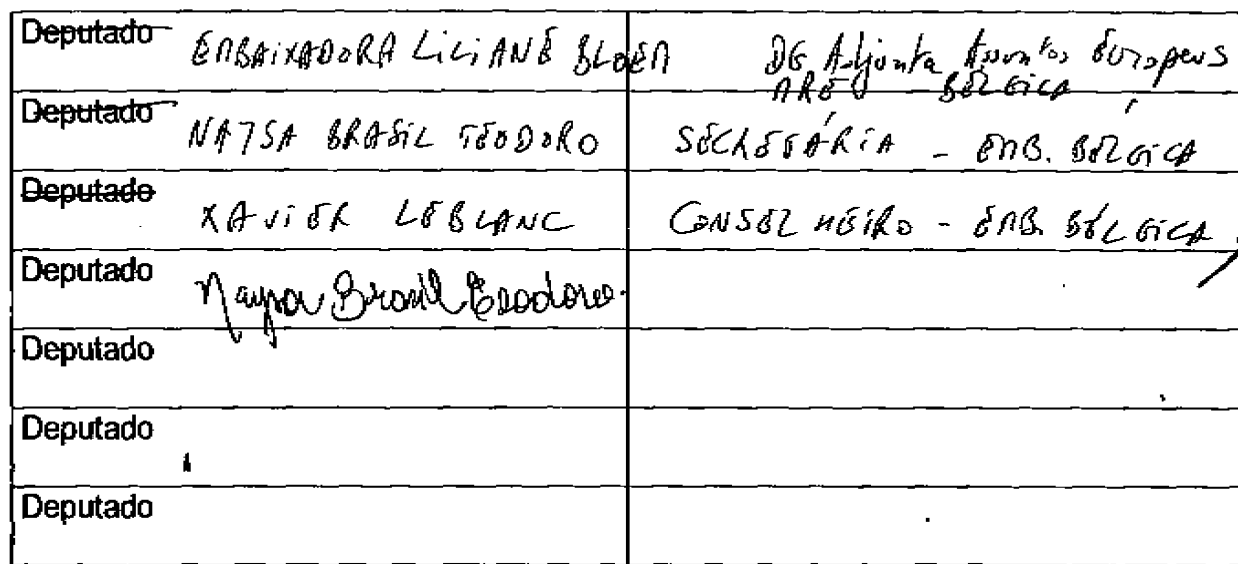 Deputado EMBAIXADORA LILIANE BLOEM DG Adjunta Assuntos Europeus
MRE - BÉLGICA
Deputado NAYSA BRASIL TEODORO SECRETÁRIA - EMB. BÉLGICA
Deputado XAVIER LEBLANC CONSELHEIRO - EMB. BÉLGICA
Deputado Naysa Brasil Teodoro
Deputado
Deputado
Deputado